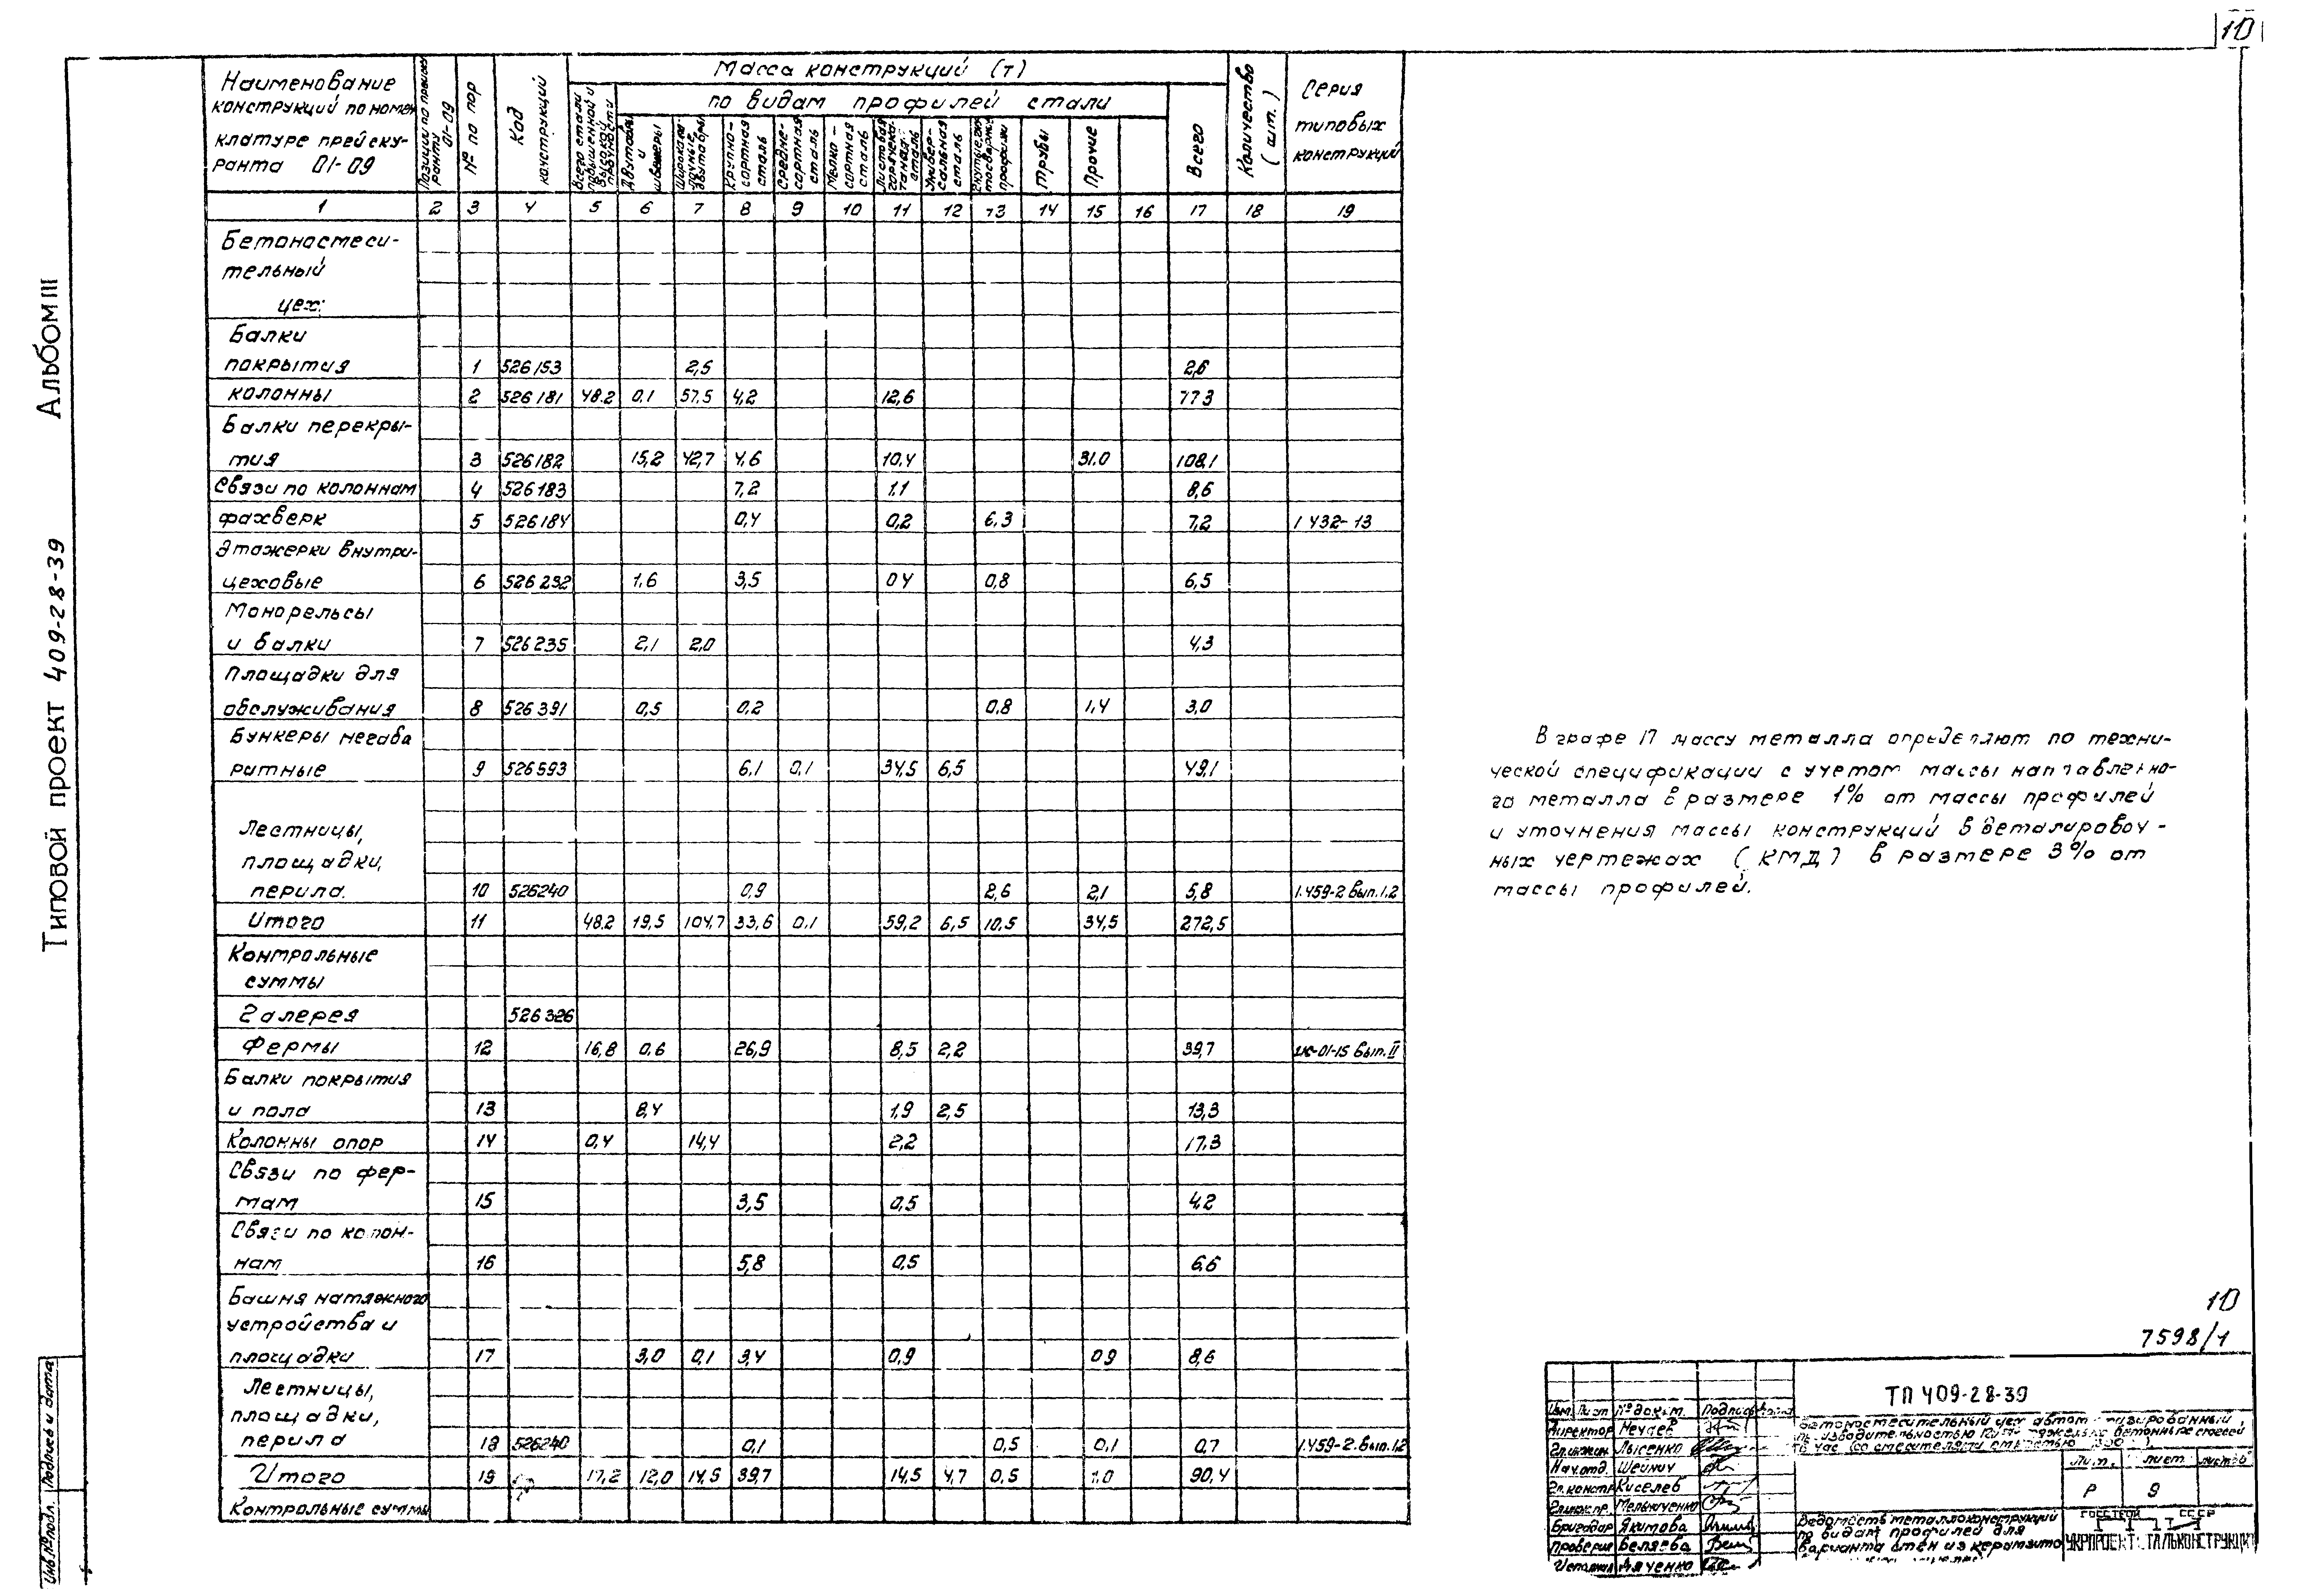 10
Альбом III
Типовой проект 409-28-39
Наименование конструкций по номенклатуре прейскуранта 01-09
Позиции по прейскуранту 01-09
№ по пор
Код конструкции
Масса конструкций (т)
по видам профилей стали
Всего стали повышенной и высокой прочности
Двутавры и швеллеры
Широкополочные двутавры
Крупносортная сталь
Среднесортная сталь
Мелкосортная сталь
Листовая горячекатаная сталь
Универсальная сталь
Гнутые профили
Трубы
Прочие
Всего
Количество (шт.)
Серия типовых конструкций
1 2 3 4 5 6 7 8 9 10 11 12 13 14 15 16 17 18 19
Бетоносмеси-
тельный
цех:
Балки
покрытия 1 526153 2,5 2,6
колонны 2 526181 48.2 0,1 57,5 4,2 12,6 77.3
Балки перекры-
тия 3 526182 15,2 42,7 4,6 10,4 31.0 108,1
Связи по колоннам 4 526183 7,2 1.1 8,6
фахверк 5 526184 0,4 0,2 6,3 7,2 1 432-13
Этажерки внутри-
цеховые 6 526232 1,6 3,5 0 4 0,8 6,5
Монорельсы
и балки 7 526235 2,1 2,0 4,3
Площадки для
обслуживания 8 526391 0,5 0,2 0,8 1,4 3,0
Бункеры негаба
ритные 9 526593 6,1 0,1 34,5 6,5 49,1
Лестницы,
площадки,
перила. 10 526240 0,9 2,6 2,1 5,8 1.459-2 вып.1,2
Итого 11 48.2 19,5 104,7 33,6 0,1 59,2 6,5 10,5 34,5 272,5
Контрольные
суммы
Галерея 526326
Фермы 12 16,8 0,6 26,9 8,5 2,2 39,7 -01-15 вып. II
Балки покрытия
и пола 13 8,4 1,9 2,5 13,3
Колонны опор 14 0,4 14,4 2,2 17,3
Связи по фер-
мам 15 3,5 0,5 4,2
Связи по колон-
нам 16 5,8 0,5 6,6
Башня натяжного
устройства и
площадки 17 3,0 0,1 3,4 0,9 0 9 8,6
Лестницы,
площадки,
перила 18 526240 0,1 0,5 0,1 0,7 1.459-2. вып.1,2
Итого 19 17,2 12,0 14,5 39,7 14,5 4,7 0,5 1.0 90,4
Контрольные суммы
В графе 17 массу металла определяют по техни-
ческой спецификации с учетом массы наплавленно-
го металла в размере 1% от массы профилей
и уточнения массы конструкций в деталировоч-
ных чертежах (КМД) в размере 3% от
массы профилей.
10
7598/1
ТП 409-28-39
Изм. Лист № докум. Подпись Дата
Директор Нечаев
Гл.инжен Лысенко
Нач.отд. Шейнич
Гл.констр Киселев
Гл.инж.пр. Мельниченко
Бригадир Якимова
Проверил Беляева
Исполнил Дяченко
Бетоносмесительный цех автоматизированный
Лит. Лист Листов
Р 9
Ведомость металлоконструкций
по видам профилей для
варианта стен из керамзито
ГОССТРОЙ СССР
УКРПРОЕКТСТАЛЬКОНСТРУКЦИЯ
Инв.№подл. Подпись и дата